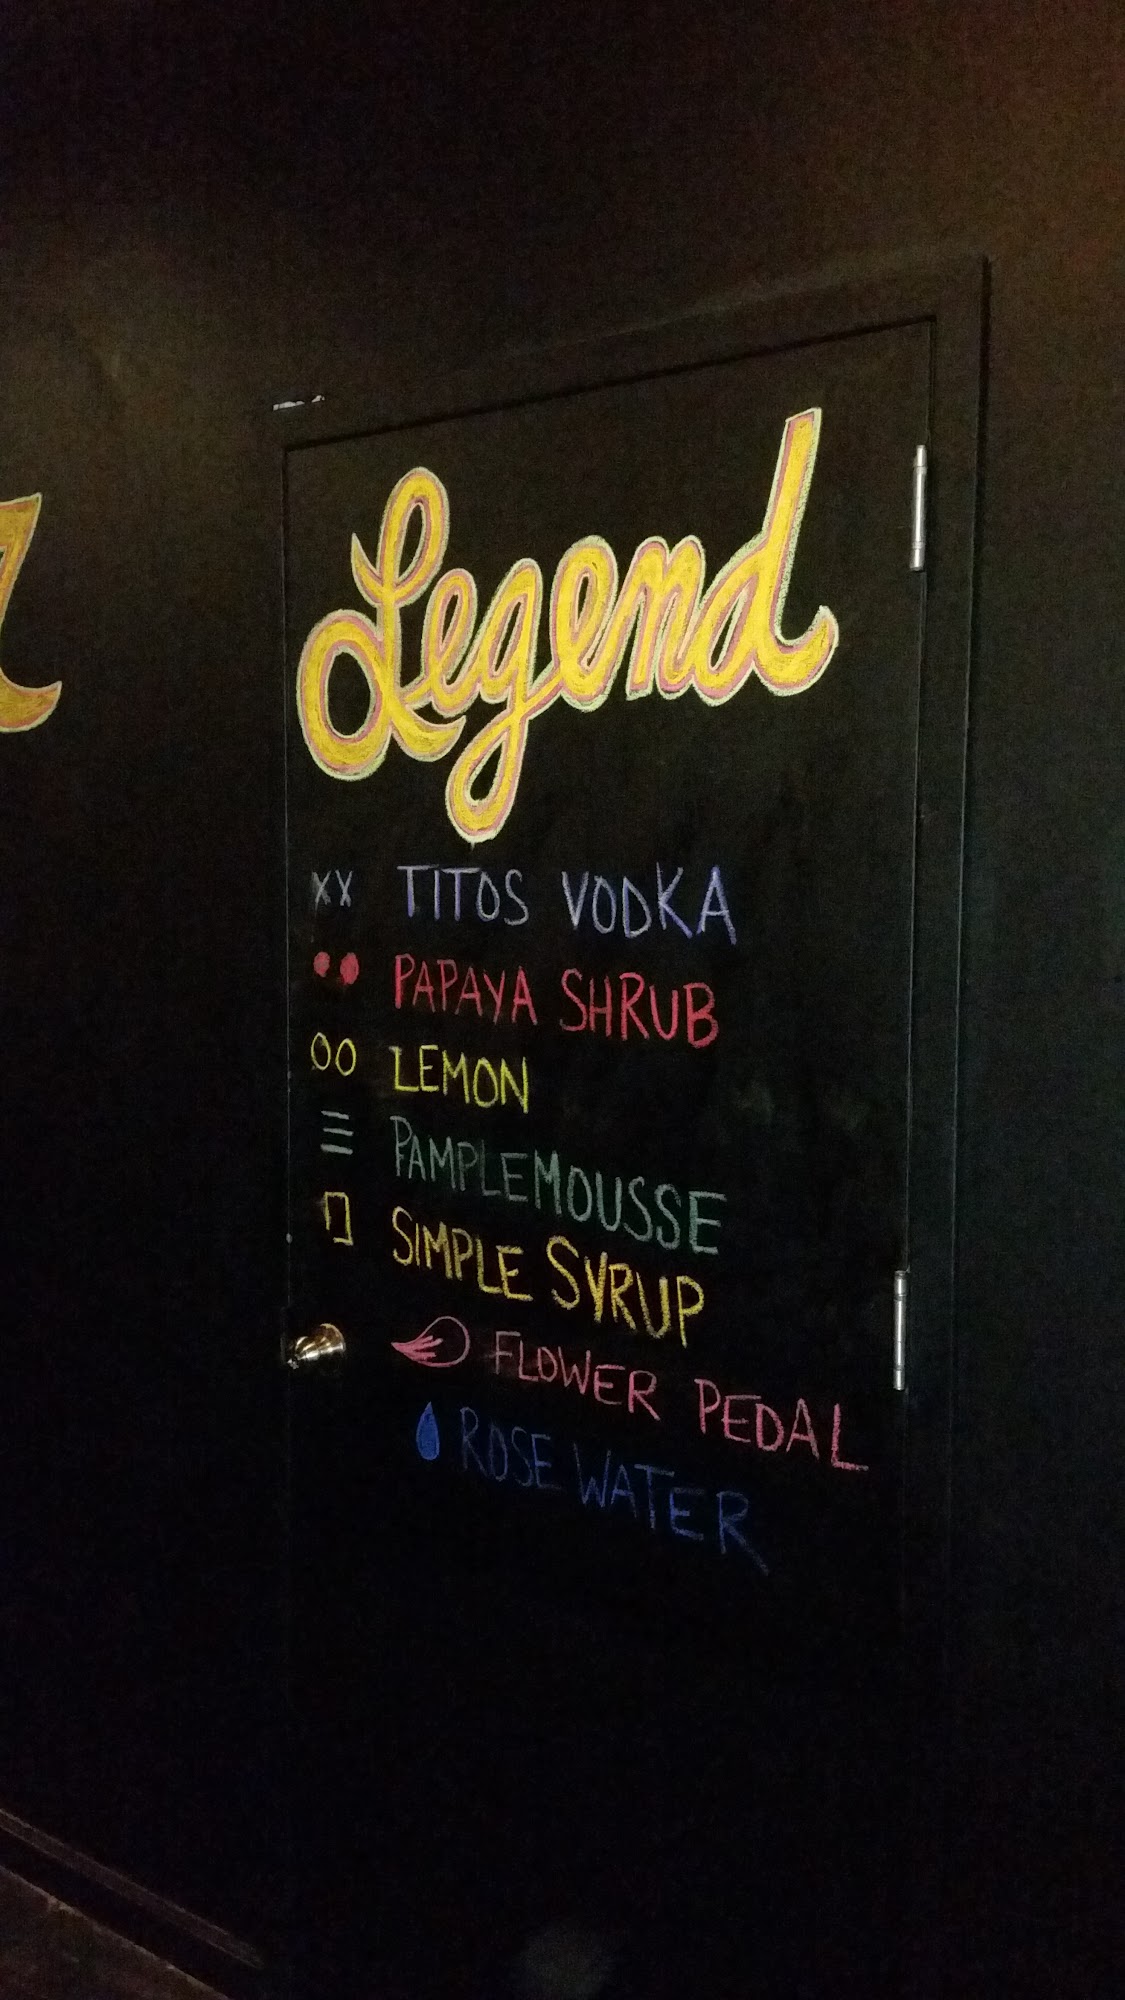 Legend
XX TITOS VODKA
PAPAYA SHRUB
LEMON
PAMPLEMOUSSE
SIMPLE SYRUP
FLOWER PEDAL
ROSE WATER